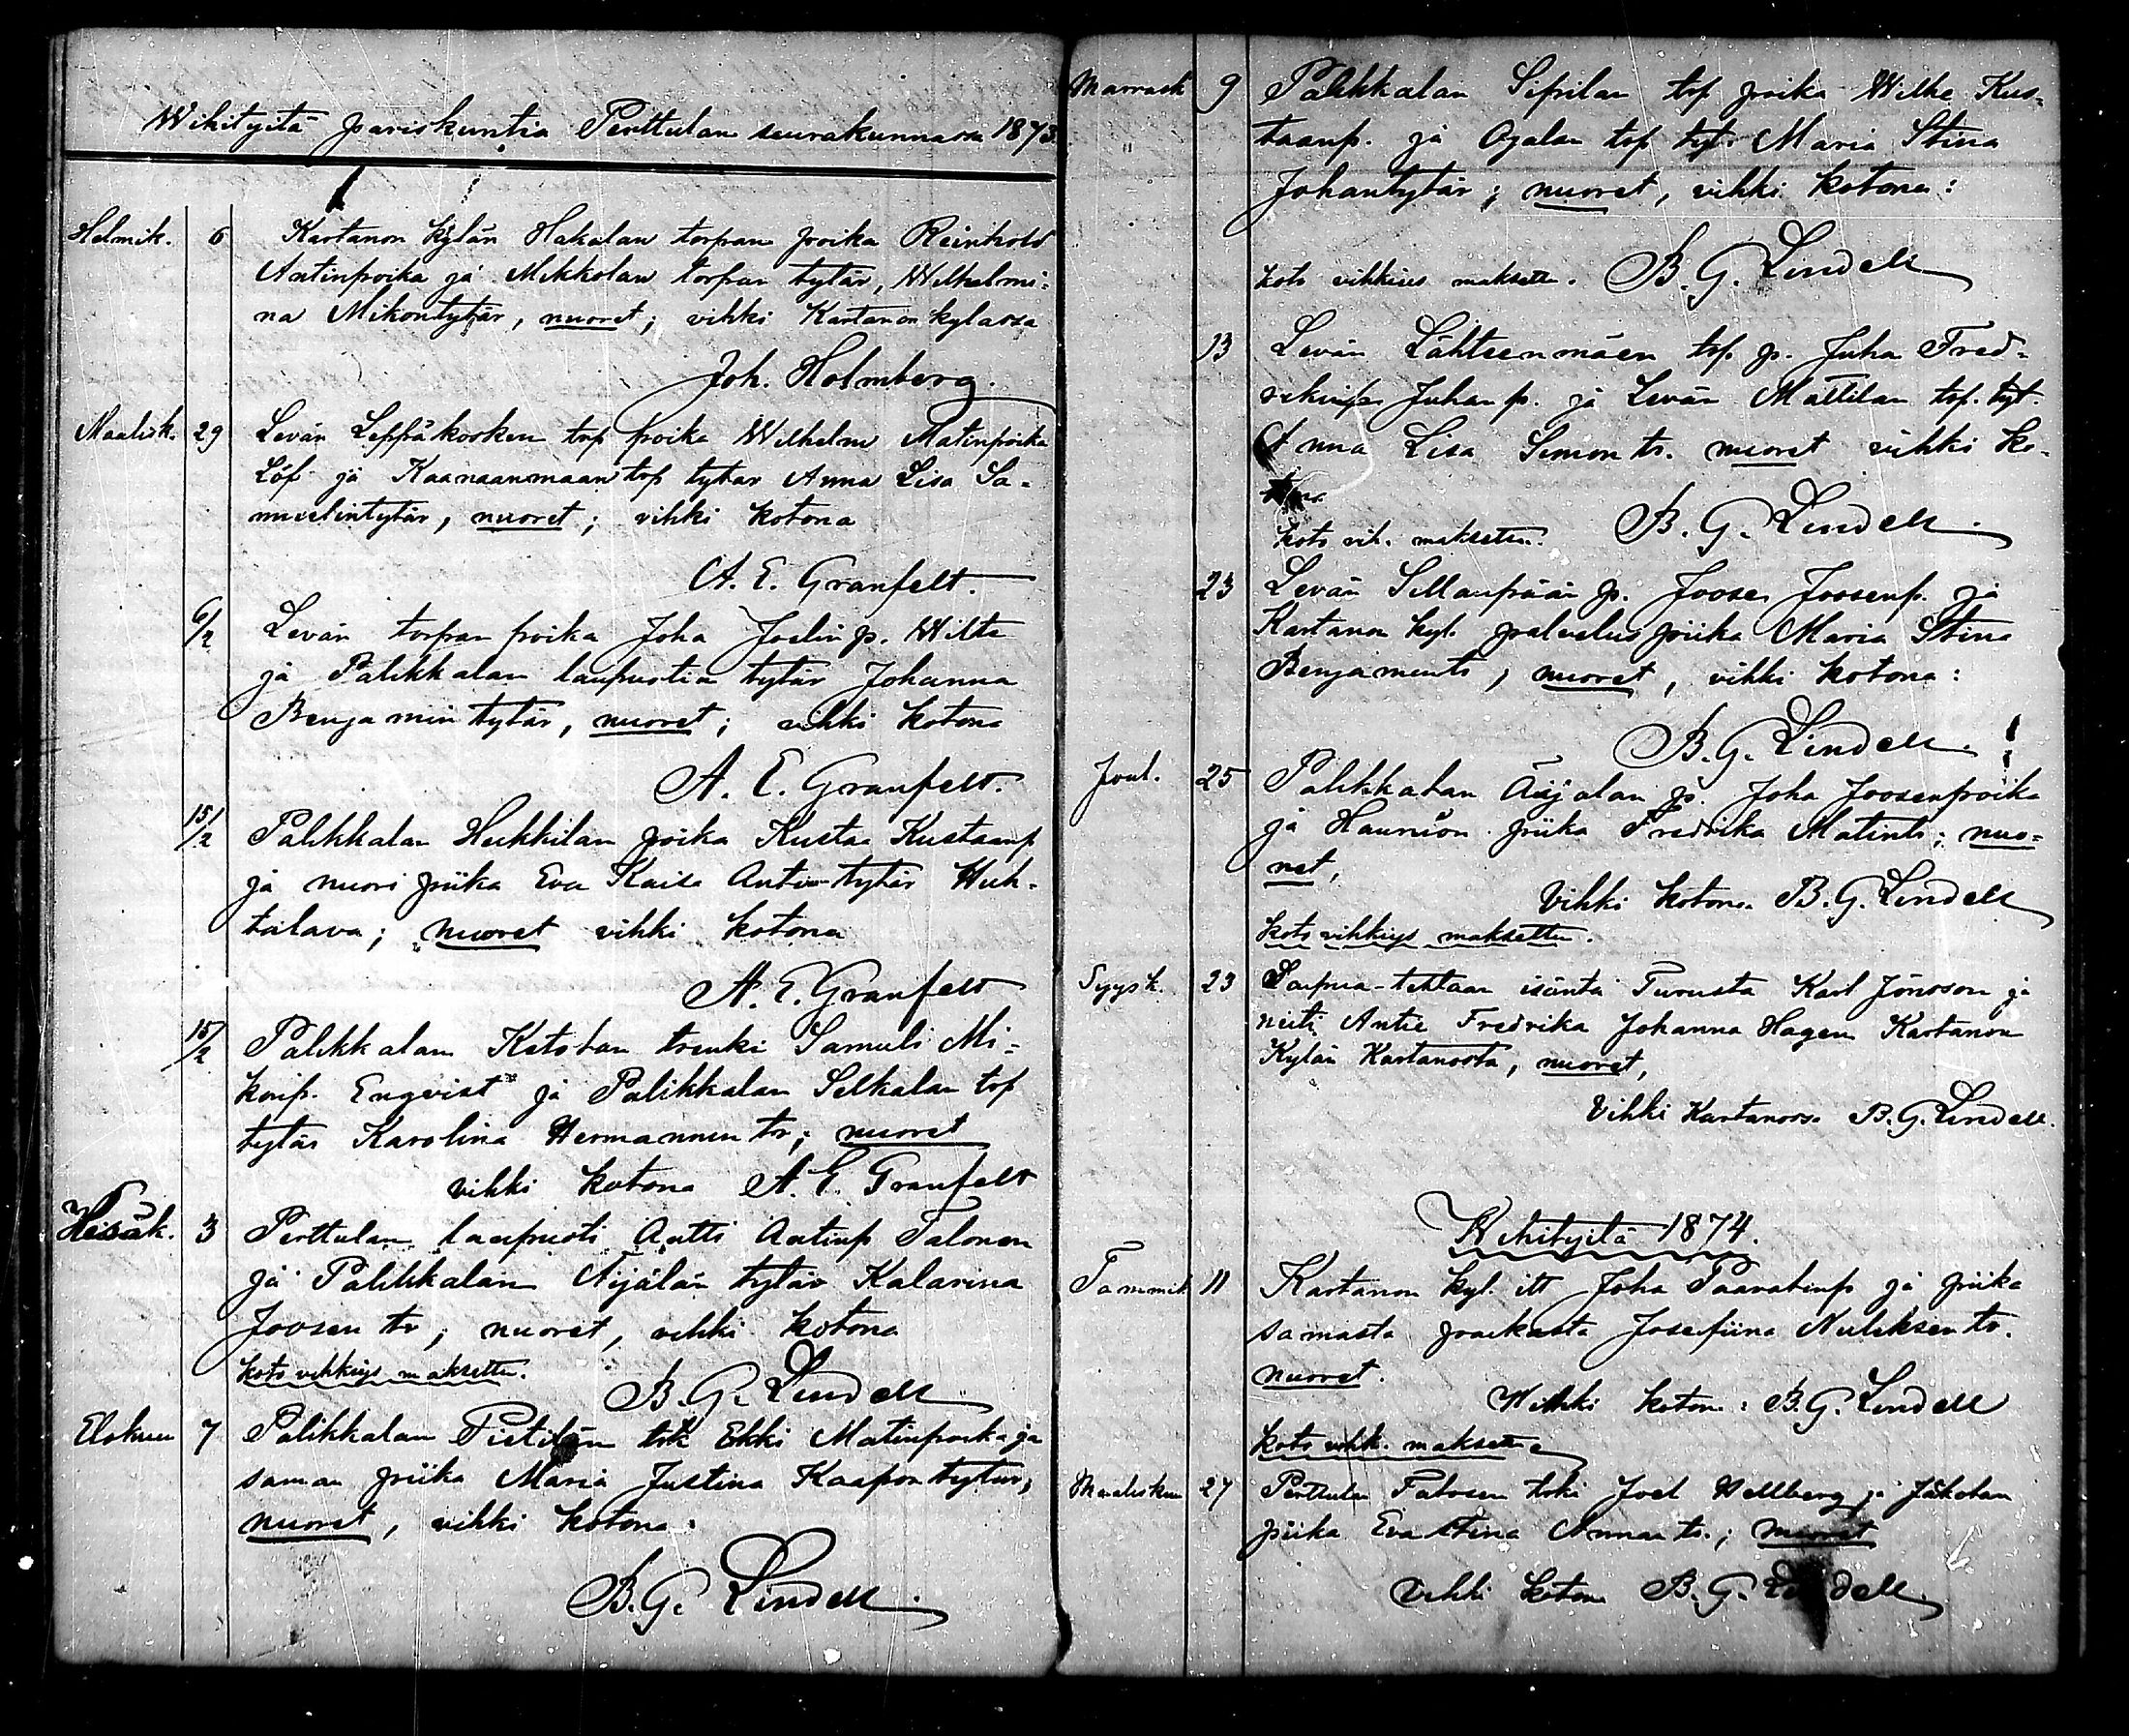 Wihityitä pariskuntia Perttulan seurakunnassa 1873
Helmik. 6 Kartanon kylän Hakalan torpan poika Reinhold
Antinpoika ja Mikkolan torpan tytär, Wilhelmi-
na Mikontytär, nuoret; vihki Kartanon kylassa
Joh. Holmberg.
Maalisk. 29 Levän Leppäkosken trp poika Wilhelm Matinpoika
Löf ja Kaanaanmaan trp tytar Anna Lisa Sa-
muelintytär, nuoret; vihki kotona
A. E. Granfelt.
6/2 Levän torpan poika Joha Joelin p.
ja Palikkalan tytär Johanna
Benjamin tytär, nuoret; vihki kotona
A. E. Granfelt.
15/2 Palikkalan Heikkilan poika Kustaa Kustaanp
ja nuori piika Eva Kaisa Antin tytär
nuoret vihki kotona
A. E. Granfelt
15/2 Palikkalan trenki Samuli Mi-
konp. Enqvist ja Palikkalan trp
tytär Karolina Hermannin tr; nuoret
vihki kotona A. E. Granfelt
Kesäk. 3 Perttulan Antti Antinp Talonen
ja Palikkalan Äijälän tytär
Joosen tr; nuoret, vihki kotona
koto vihkiys maksettu.
B. G. Lindell
Elokuu 7 Palikkalan Erkki Matinpoika ja
saman piika Maria Justina Kaapontytär,
nuoret, vihki kotona:
B. G. Lindell.
Marrask 9 Palikkalan trp poika Wilhe Kus-
taanp. ja Ojalan trp tyt. Maria Stina
Johantytär; nuoret, vihki kotona:
koto vihkiys maksettu. B. G. Lindell
13 Levän Lähteenmäen trp p. Juha Fred-
Juhanp. ja Levän Mattilan trp. tyt
Anna Lisa Simon tr. nuoret vihki ko-
tona
koto vih. maksettu. B. G. Lindell.
23 Levän Sillanpään p. Joose Joosenp. ja
Kartanon kyl. palvelus piika Maria Stina
Benjamintr, nuoret, vihki kotona:
B. G. Lindell.
Joul. 25 Palikkalan Äijalan p. Joha Joosenpoika
ja piika Fredrika Matintr; nuo-
ret,
Vihki kotona B. G. Lindell
koto vihkiys maksettu.
Syysk. 23 Saipua-tehtaan isäntä Turusta Karl Jönsson ja
neiti Fredrika Johanna Hagen Kartanon
Kylän Kartanosta, nuoret,
Vihki Kartanossa B. G. Lindell.
Wihityitä 1874.
Tammik 11 Kartanon kyl. itt Joha Paavalinp ja piika
samasta paikasta Josefiina tr.
nuoret.
Wihki kotona: B. G. Lindell
koto vihk. maksettu
Maaliskuu 27 Perttulan Talosen Joel Hellberg ja Jäkolan
piika Eva Stina Annan tr.; nuoret
Vihki kotona B. G. Lindell